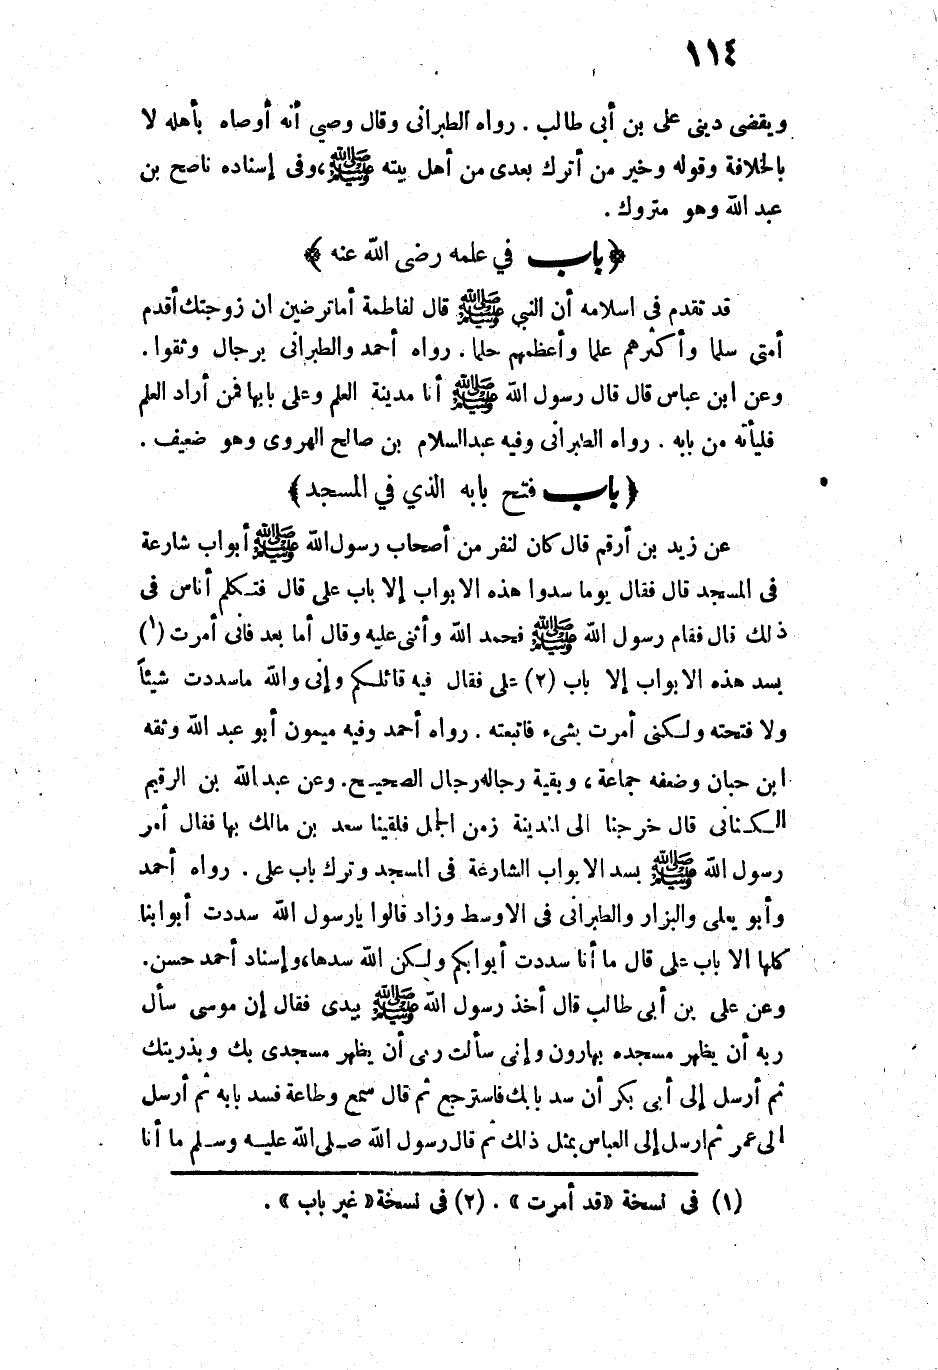 ١١٤
ويقضى دينى على بن أبى طالب . رواه الطبرانى وقال وصي أنه أوصاه بأهله لا
بالخلافة وقوله وخير من أترك بعدى من أهل بيته ﷺ ،وفى إسناده ناصح بن
عبد الله وهو متروك .
﴿باب في علمه رضى الله عنه ﴾
قد تقدم فى اسلامه أن النبي ﷺ قال لفاطمة أماترضين ان زوجتك أقدم
أمتى سلما وأكثرهم علما وأعظمهم حلما . رواه أحمد والطبرانى برجال وثقوا .
وعن ابن عباس قال قال رسول الله ﷺ أنا مدينة العلم وعلى بابها فمن أراد العلم
فليأته من بابه . رواه الطبرانى وفيه عبدالسلام بن صالح الهروى وهو ضعيف .
﴿باب فتح بابه الذي في المسجد﴾
عن زيد بن أرقم قال كان لنفر من أصحاب رسول الله ﷺ أبواب شارعة
فى المسجد قال فقال يوما سدوا هذه الابواب إلا باب على قال فتكلم أناس فى
ذلك قال فقام رسول الله ﷺ فحمد الله وأثنى عليه وقال أما بعد فانى أمرت (١)
بسد هذه الابواب إلا باب (٢) على فقال فيه قائلكم وإنى والله ماسددت شيئاً
ولا فتحته ولكنى أمرت بشىء فاتبعته . رواه أحمد وفيه ميمون أبو عبد الله وثقه
ابن حبان وضعفه جماعة ، وبقية رجاله رجال الصحيح . وعن عبد الله بن الرقيم
الكنانى قال خرجنا الى المدينة زمن الجمل فلقينا سعد بن مالك بها فقال أمر
رسول الله ﷺ بسد الابواب الشارعة فى المسجد وترك باب على . رواه أحمد
وأبو يعلى والبزار والطبرانى فى الاوسط وزاد قالوا يارسول الله سددت أبوابنا
كلها الا باب على قال ما أنا سددت أبوابكم ولكن الله سدها،وإسناد أحمد حسن.
وعن على بن أبى طالب قال أخذ رسول الله ﷺ بيدى فقال إن موسى سأل
ربه أن يطهر مسجده بهارون وإنى سألت ربى أن يطهر مسجدى بك وبذريتك
ثم أرسل إلى أبى بكر أن سد بابك فاسترجع ثم قال سمع وطاعة فسد بابه ثم أرسل
الى عمر ثم ارسل إلى العباس بمثل ذلك ثم قال رسول الله صلى الله عليه وسلم ما أنا
(١) فى نسخة «قد أمرت» . (٢) فى نسخة «غير باب» .